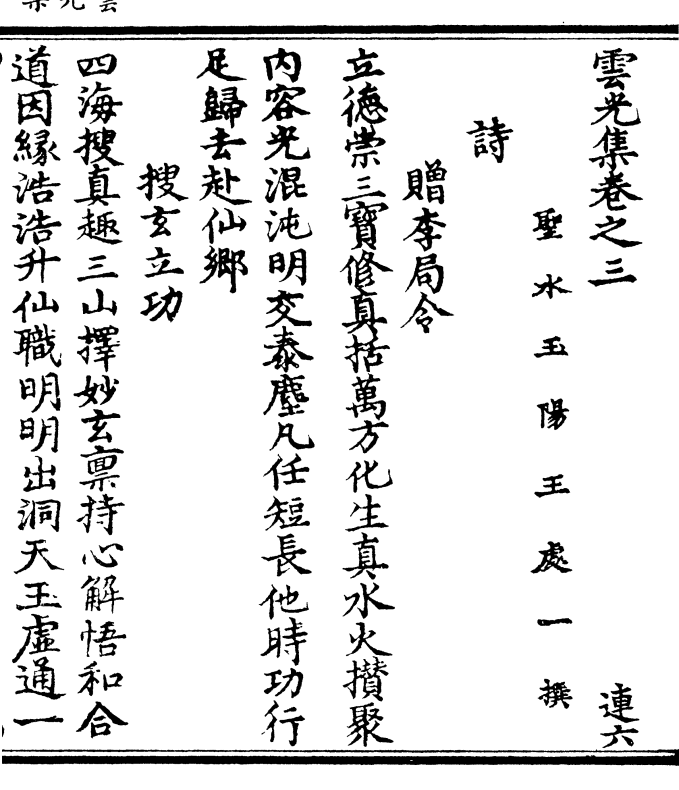 雲光集卷之三 連六
聖水玉陽王處一撰
詩
贈李局令
立德崇三寶修真括萬方化生真水火攢聚
內容光混沌明交泰塵凡任短長他時功行
足歸去赴仙鄉
搜玄立功
四海搜真趣三山擇妙玄禀持心解悟和合
道因緣浩浩升仙職明明出洞天玉虛通一